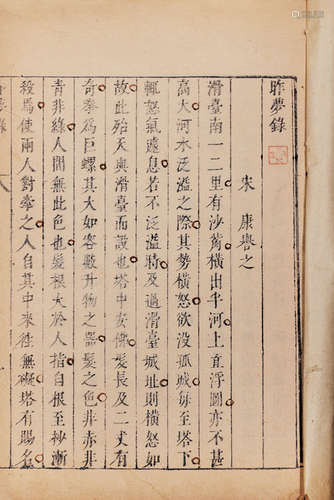 昨夢錄
宋 康譽之
滑臺南一二里有沙觜橫出半河上直浮圖亦不甚
高大河水泛溢之際其勢橫怒欲沒孤城每至塔下
輒怒氣遠息若不泛溢時及過滑臺城址則橫怒如
故此殆天與滑臺而設也塔中安佛髮長及二丈有
奇拳爲巨螺其大如容數升物之器髮之色非赤非
青非綠人間無此色也髮根大於人指自根至杪漸
殺焉使兩人對拳之人自其中來往無礙塔有賜名